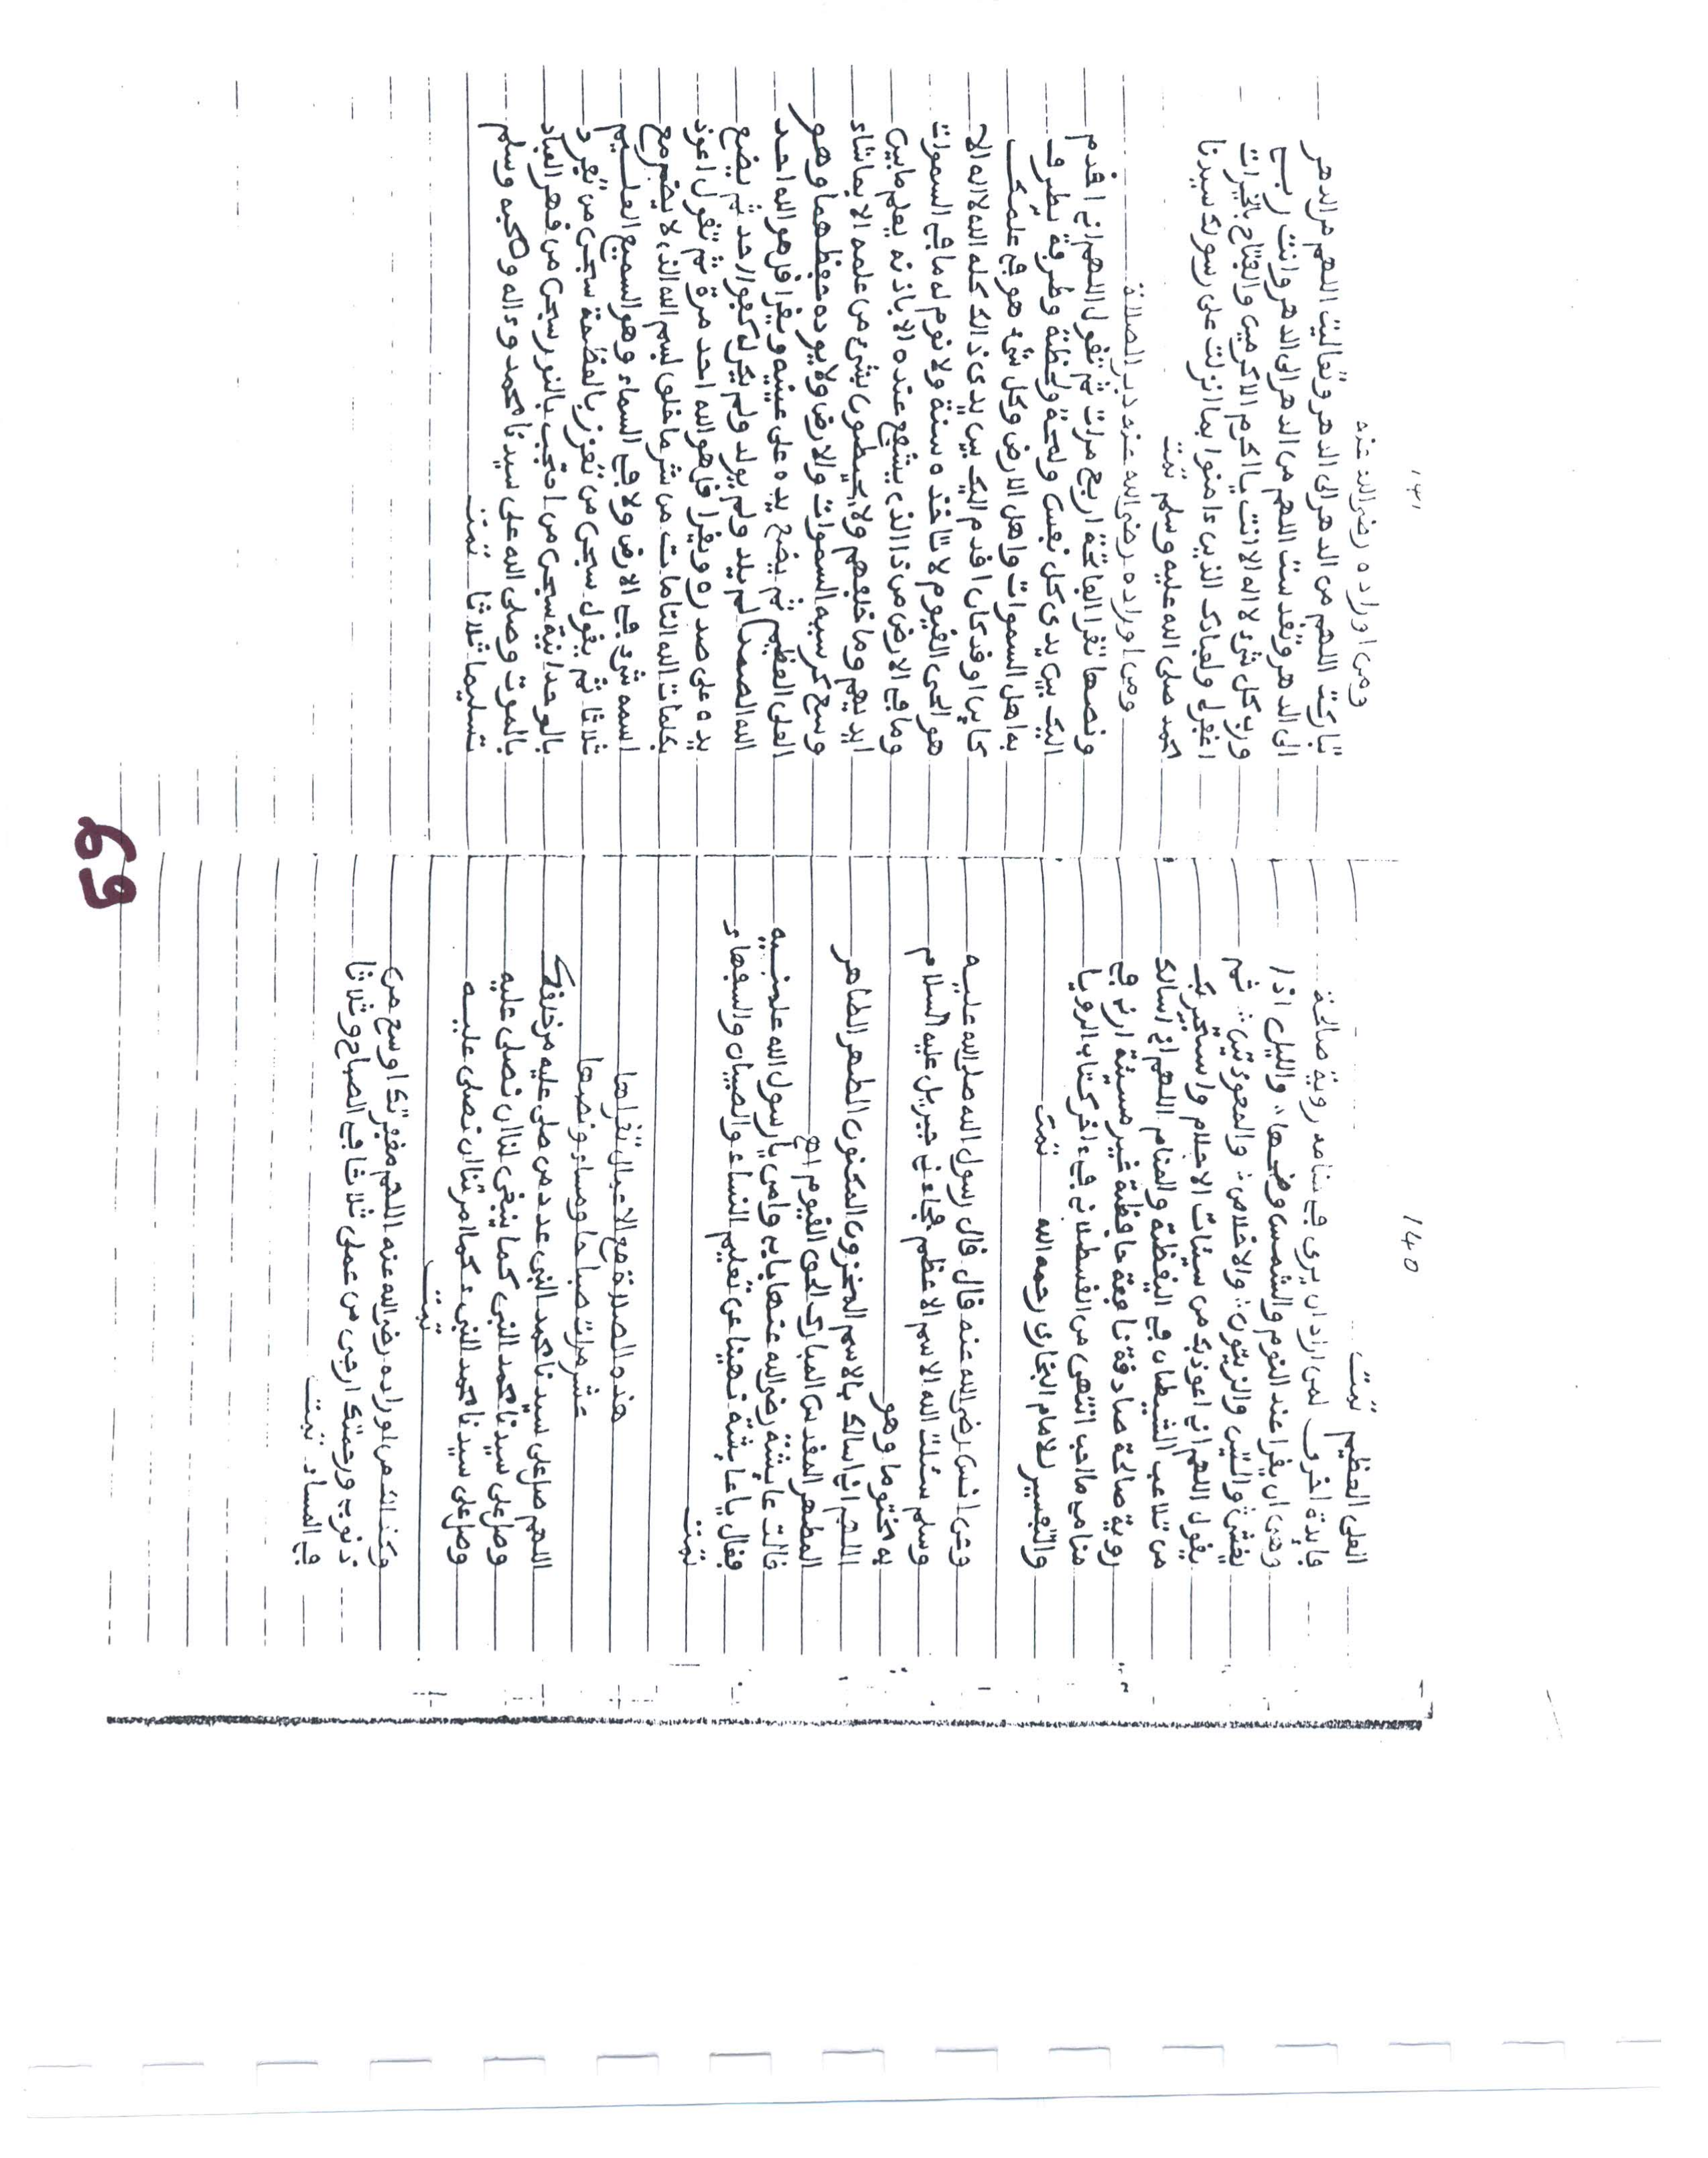 140
العلى العظيم تمت
فايدة اخرى لمن اراد ان يرى في منامه روية صالحة
وهى ان يقرا عند النوم والشمس وضحها، والليل اذا
يغشى والتين والزيتون، والاخلاص، والمعوذتين، ثم
يقول اللهم اني اعوذبك من سيئات الاحلام واستجيربك
من تلاعب الشيطان في اليقظة والمنام اللهم اني اسالك
روية صالحة صادقة نافعة حافظة غير مسئة ارني في
منامي ما احب انتهى من القسطلاني في ءاخر كتاب الرويا
والتعبير للامام البخارى رحمه الله تمت
وعن انس رضي الله عنه قال قال رسول الله صلى الله عليه
وسلم سئلت الله الاسم الاعظم فجاءني جبريل عليه السلام
به مختوما وهو
اللهم اني اسالك بالاسم المخزون المكنون الطهر الطاهر
المطهر المقدس المبارك الحى القيوم اه
قالت عايشة رضي الله عنها بابي وامي يا رسول الله علمنيه
فقال يا عايشة نهينا عن تعليم النساء والصبيان والسفهاء
تمت
هذه الصلاة مع الاعمال تقراها
عشر مرات صباحا ومساء ونصها
اللهم صل على سيدنا محمد النبى عدد من صلى عليه من خلقك
وصل على سيدنا محمد النبى كما ينبغى لنا ان نصلى عليه
وصل على سيدنا محمد النبىء كما امرتنا ان نصلى عليه
تمت
وكذالك من اوراده رضي الله عنه اللهم مغفرتك اوسع من
ذنوبي ورحمتك ارجى من عملى ثلاثا في الصباح وثلاثا
في المساء تمت
141
ومن اوراده رضي الله عنه
تباركت اللهم من الدهر الى الدهر وتعاليت اللهم من الدهر
الى الدهر وتقدست اللهم من الدهر الى الدهر وانت ربي
ورب كل شىء لا اله الا انت يا اكرم الاكرمين والفتاح بالخيرات
اغفرلي ولعبادك الذين ءامنوا بما انزلت على رسولك سيدنا
محمد صلى الله عليه وسلم تمت
ومن اوراده رضي الله عنه دبر الصلاة
ونصها تقرا الفاتحة اربع مرات ثم تقول اللهم اني اقدم
اليك بين يدى كل نفس ولمحة ولحظة وطرفة يطرف
بها اهل السموات واهل الارض وكل شىء هو في علمك
كاين او قد كان اقدم اليك بين يدى ذالك كله الله لا اله الا
هو الحى القيوم لا تاخذه سنة ولا نوم له ما في السموات
وما في الارض من ذا الذى يشفع عنده الا باذنه يعلم ما بين
ايديهم وما خلفهم ولا يحيطون بشىء من علمه الا بما شاء
وسع كرسيه السموات والارض ولا يوده حفظهما وهو
العلى العظيم ثم يضع يده على عينيه ويقرا قل هو الله احد
الله الصمد لم يلد ولم يولد ولم يكن له كفوا احد ثم يضع
يده على صدره ويقرا قل هو الله احد مرة ثم تقول اعوذ
بكلمات الله التامات من شر ما خلق بسم الله الذى لا يضر مع
اسمه شىء في الارض ولا في السماء وهو السميع العليم
ثلاثا ثم يقول سبحن من تعزز بالعظمة سبحن من تفرد
بالوحدانية سبحن من احتجب بالنور سبحن من قهر العباد
بالموت وصلى الله على سيدنا محمد وءاله وصحبه وسلم
تسليما ثلاثا تمت
69